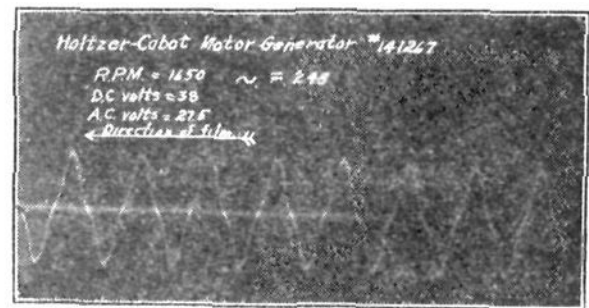 Holtzer-Cabot Motor Generator #141267
R.P.M. = 1650 ~ =
D.C. volts = 38
A.C. volts = 27.5
Direction of film